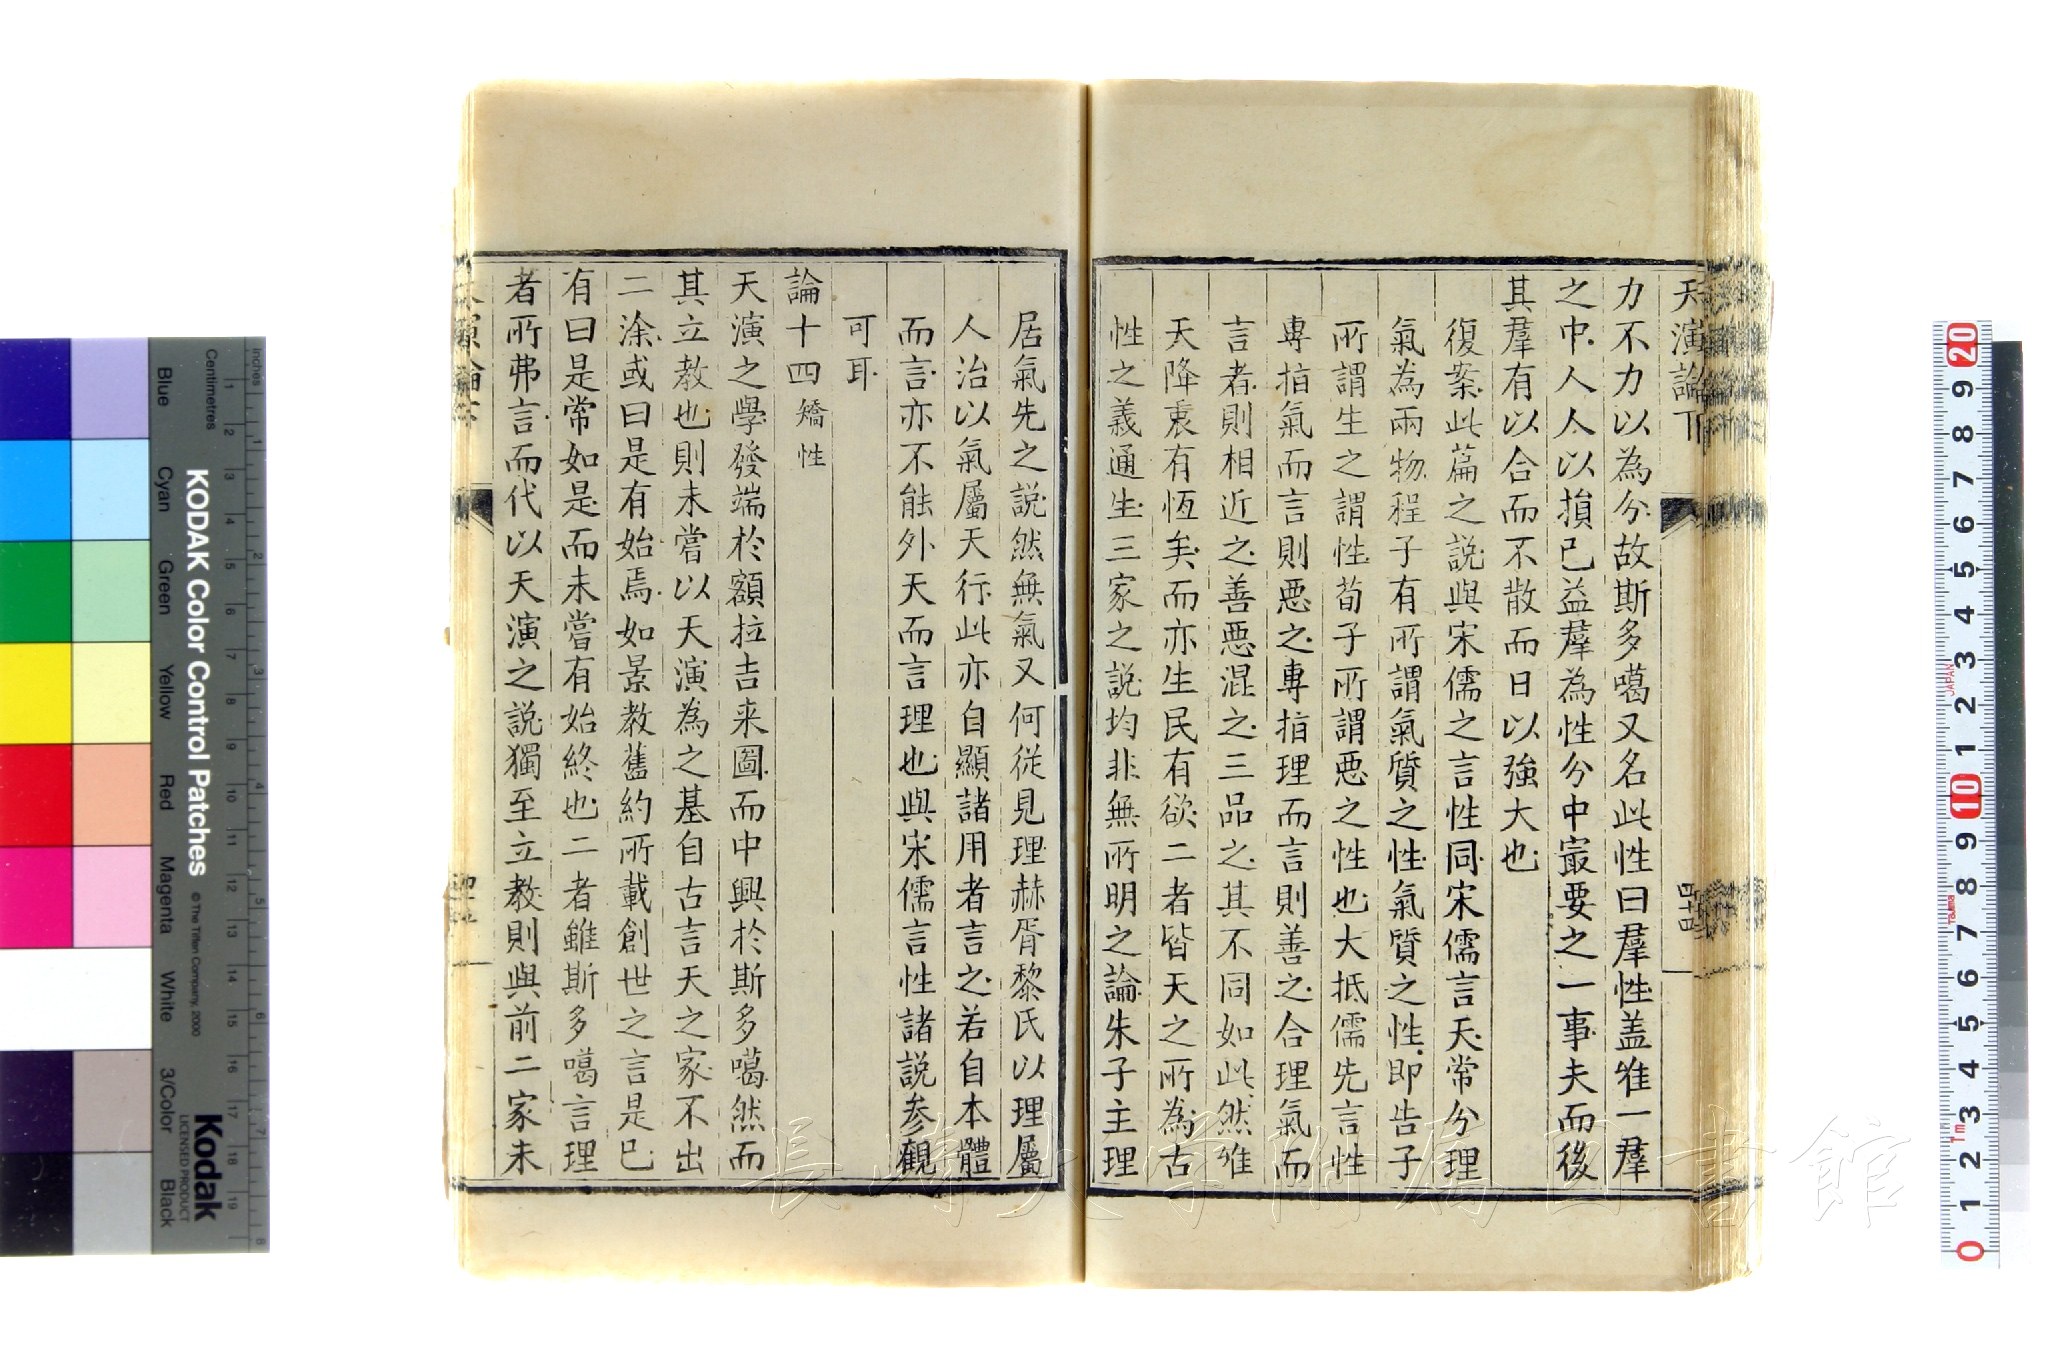 天演論下
四十四
力不力以為分故斯多噶又名此性曰羣性盖惟一羣
之中人人以損己益羣為性分中寂要之一事夫而後
其羣有以合而不散而日以強大也
復案此篇之說與宋儒之言性同宋儒言天常分理
氣為兩物程子有所謂氣質之性氣質之性即告子
所謂生之謂性荀子所謂惡之性也大抵儒先言性
專指氣而言則惡之專指理而言則善之合理氣而
言者則相近之善惡混之三品之其不同如此然惟
天降衷有恆矣而亦生民有欲二者皆天之所為古
性之義通生三家之説均非無所明之論朱子主理
居氣先之説然無氣又何從見理赫胥黎氏以理屬
人治以氣屬天行此亦自顯諸用者言之若自本體
而言亦不能外天而言理也與宋儒言性諸説参觀
可耳
論十四矯性
天演之學發端於額拉吉来圖而中興於斯多噶然而
其立教也則未嘗以天演為之基自古言天之家不出
二涂或曰是有始焉如景教舊約所載創世之言是已
有曰是常如是而未嘗有始終也二者雖斯多噶言理
者所弗言而代以天演之説獨至立教則與前二家未
KODAK Color Control Patches
© The Tiffen Company, 2000
Kodak
LICENSED PRODUCT
Blue
Cyan
Green
Yellow
Red
Magenta
White
3/Color
Black
inches
Centimetres
JAPAN
Tajima
Tm
長崎大学附属図書館